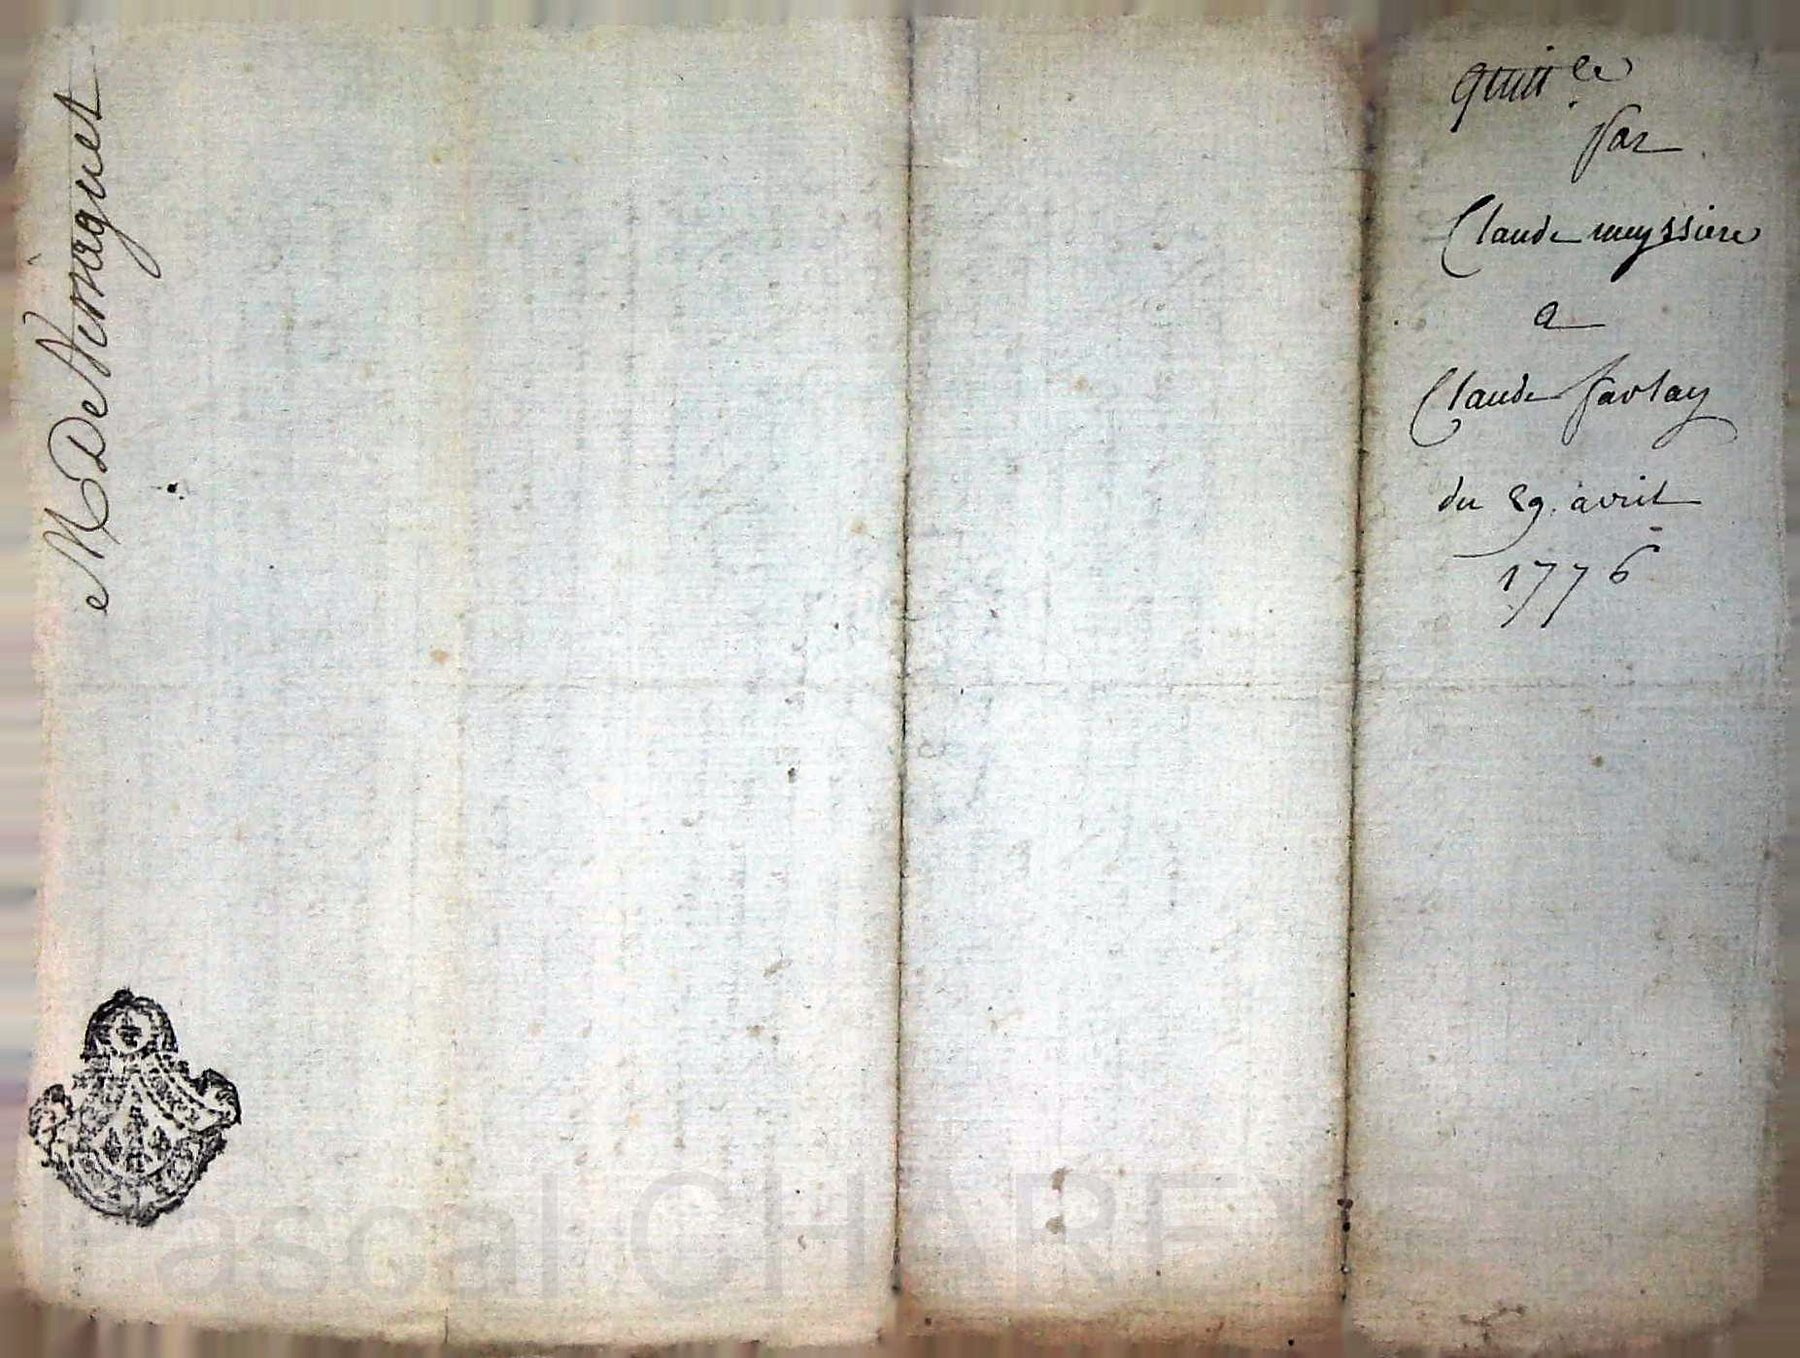 M De Nemaguet
quitt ce
par
Claude meyssiere
a
Claude farlay
du 29. avril
1776
Pascal CHAREYRE